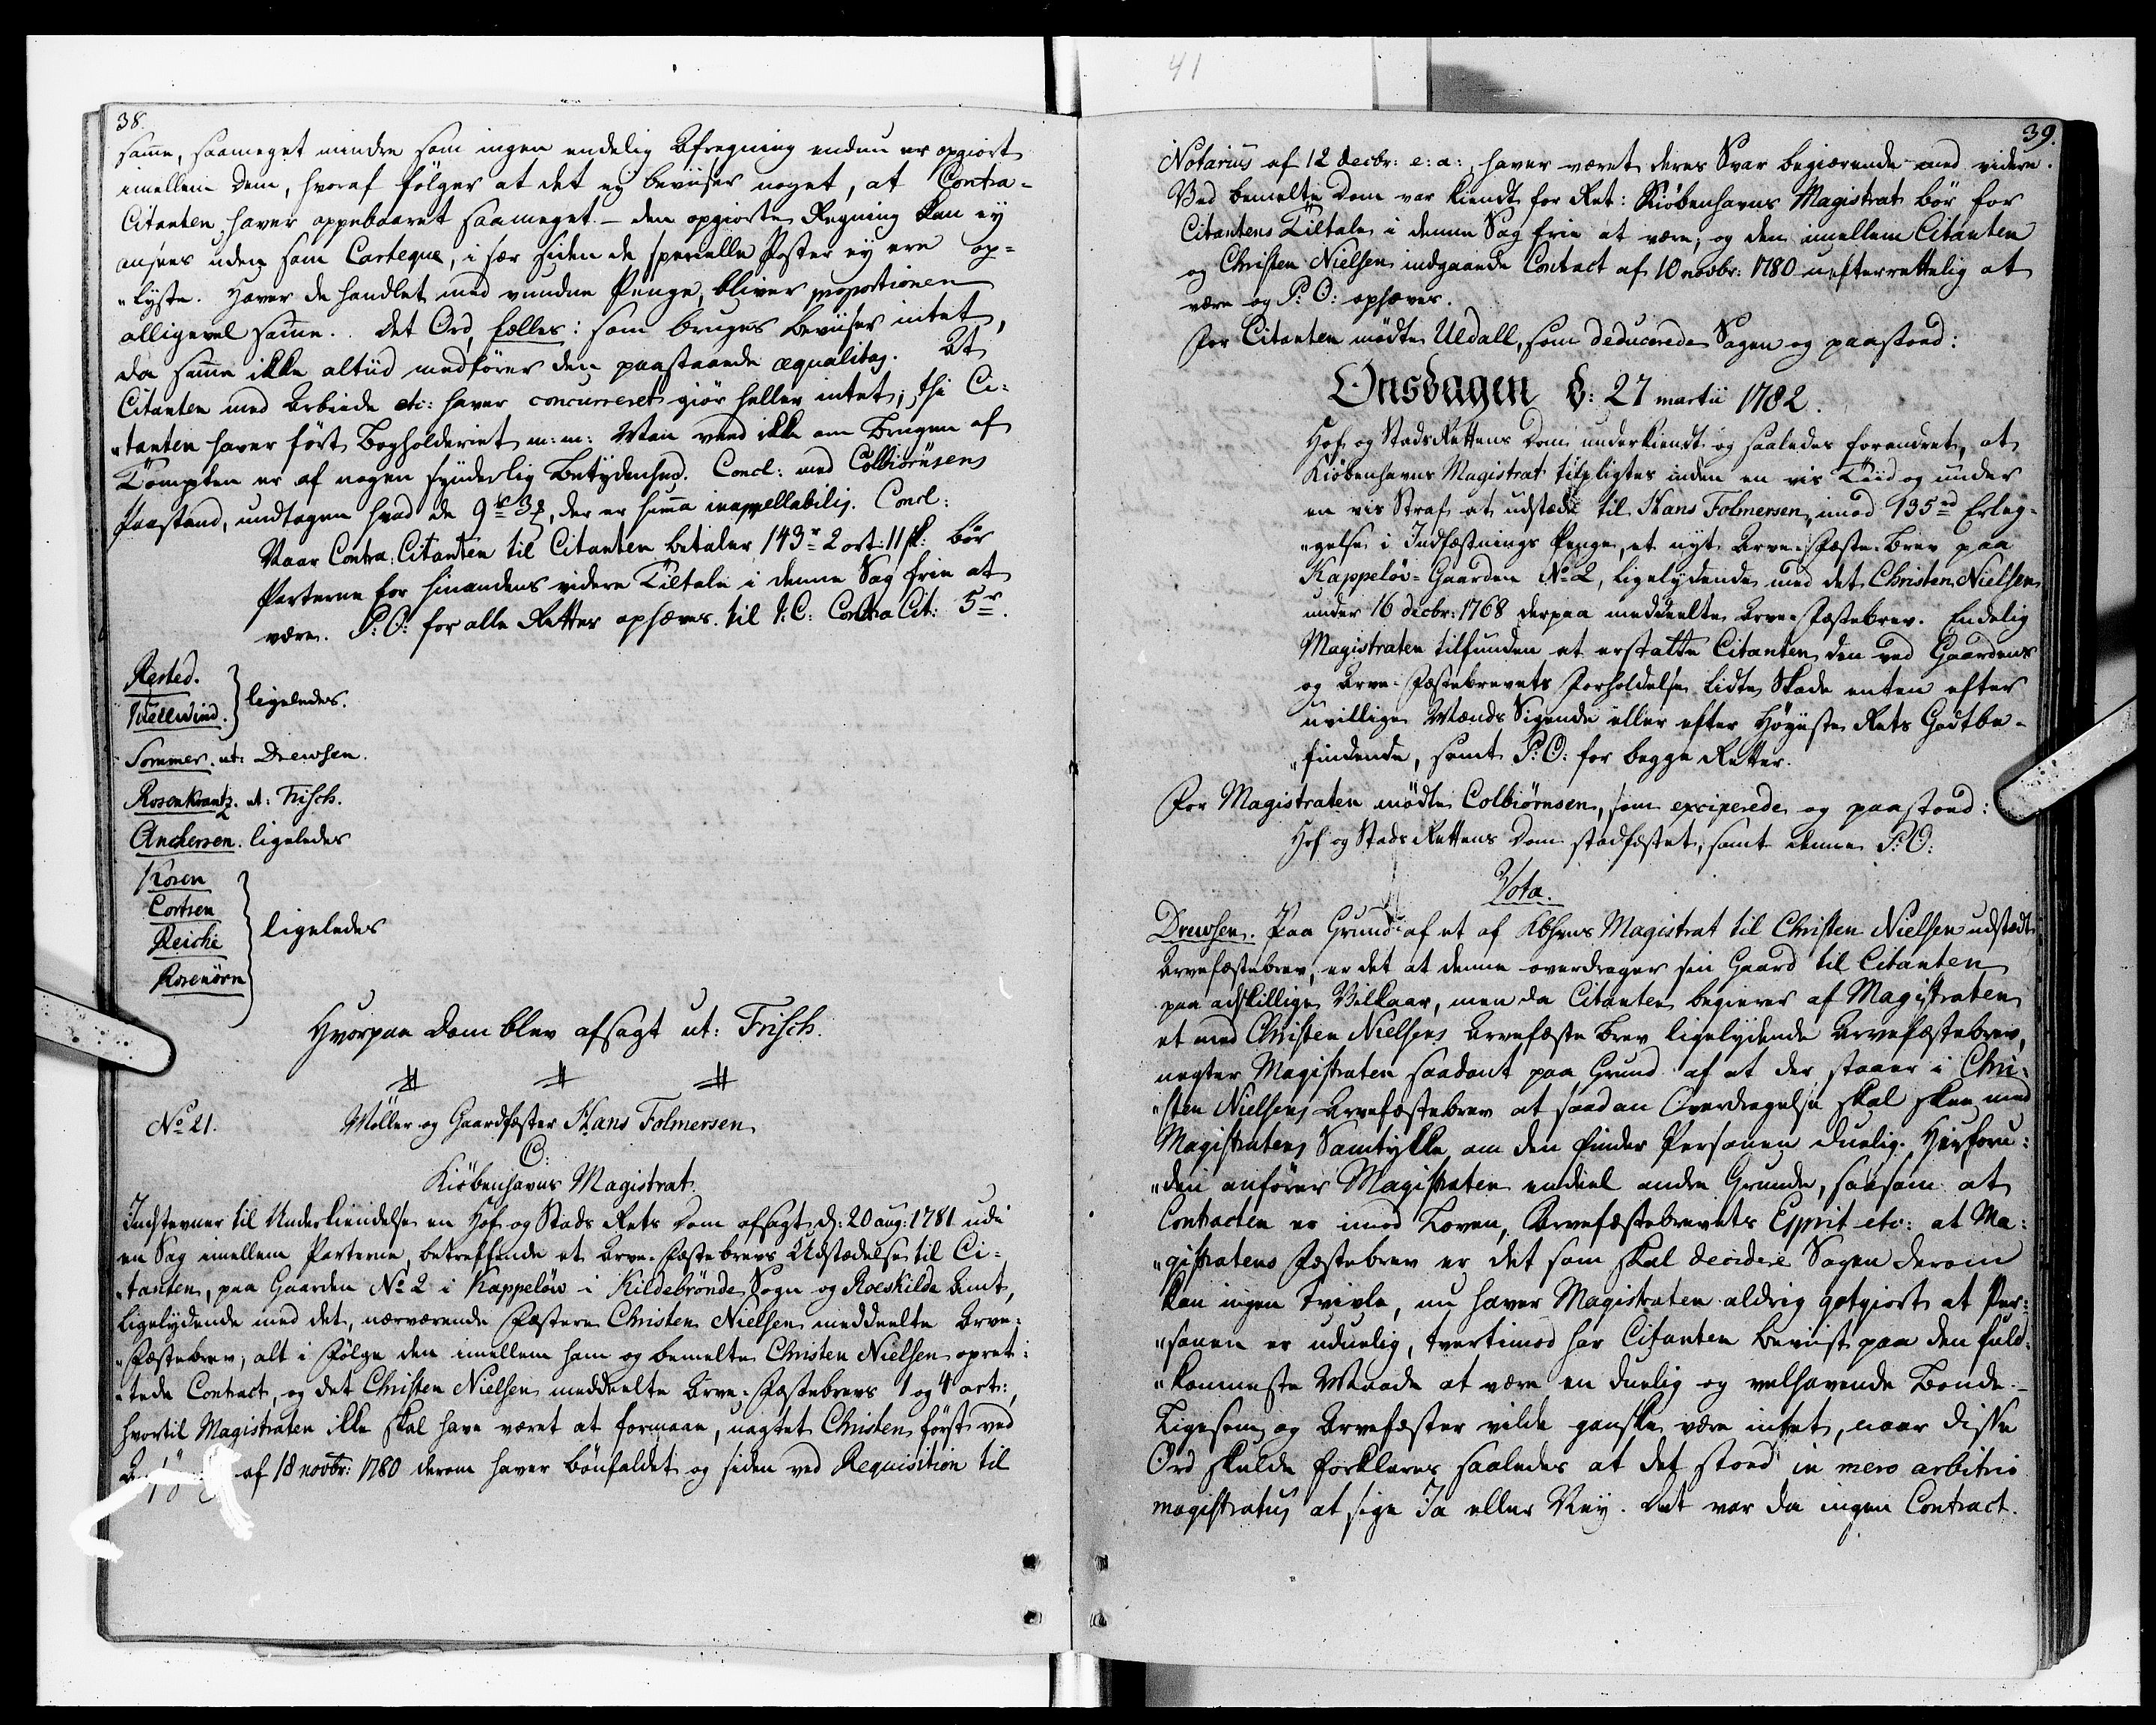 38.
samme, saameget mindre som ingen endelig Afregning endnu er opgiort
imellem dem, hvoraf følger at det ey beviiser noget, at Contra-
Citanten haver oppebaaret saameget. - den opgiorte Regning kan ey
ansees uden som Carteque, i sær siden de specielle Poster ey ere op-
"lyste. Haver de handlet med vundne Penge, bliver proportionen
alligevel samme. det Ord, fælles: som bruges beviiser intet,
da samme ikke altiid medfører den paastaaede æqualitas. At
Citanten med Arbeide etc: haver concurreret giør heller intet, thi Ci-
"tanten haver ført Bogholderiet m: m: Man veed ikke om Brugen af
Tompten er af nogen synderlig Betydenhed. Concl: med Colbiørnsens
Paastand, undtagen hvad de 9 rd 3 s, der er summa inappellabilis. Concl:
Naar Contra-Citanten til Citanten betaler 143 r 2 ort: 11 sk: bør
Parterne for hinandens videre Tiltale i denne Sag frie at
være. P: O: for alle Retter ophæves. til J: C: Contra Cit: 5 r.
Rested.
Tuellwind.
ligeledes.
Sommer. ut: Drewsen.
Rosenkrantz. ut: Frisch.
Anchersen. ligeledes
Kosen
Cortsen
Reiche
Rosenörn
ligeledes
Hvorpaa dom blev afsagt ut: Frisch.
No 21.
Møller og Gaardfæster Hans Folmersen
C:
Kiøbenhavns Magistrat.
Indstevner til Underkiendelse en Hof og Stads Rets dom afsagt d: 20 aug: 1781 udi
en Sag imellem Parterne, betreffende et Arve-Fæstebrevs Udstædelse til Ci-
"tanten, paa Gaarden No 2 i Kappeløv i Kildebrönde Sogn og Roeskilde Amt,
ligelydende med det, nærværende Fæstere Christen Nielsen meddeelte Arve-
"Fæstebrev, alt i Følge den imellem ham og bemelte Christen Nielsen opret-
"tede Contract, og det Christen Nielsen meddeelte Arve-Fæstebrevs 1 og 4 art:,
hvortil Magistraten ikke skal have været at formaae, uagtet Christen først ved
af 18 novbr: 1780 derom haver bønfaldet og siden ved Requisition til
41
39.
Notarius af 12 decbr: e: a:, haver været deres Svar begiærende med videre.
Ved bemelte Dom var kiendt for Ret: Kiøbenhavns Magistrat bør for
Citantens Tiltale i denne Sag frie at være, og den imellem Citanten
og Christen Nielsen indgaaede Contract af 10 novbr: 1780 uefterrettelig at
være og P: O: ophæves.
For Citanten mødte Uldall, som deducerede Sagen og paastod:
Onsdagen d: 27 martii 1782.
Hof og Stads Rettens dom underkiendt og saaledes forandret, at
Kiøbenhavns Magistrat tilpligtes inden en vis Tiid og under
en vis Straf at udstæde til Hans Folmersen, imod 135 rd Erleg-
"gelse i Indfæstnings Penge, et nyt Arve-Fæste-Brev paa
Kappeløv-Gaarden No 2, ligelydende med det Christen Nielsen
under 16 decbr: 1768 derpaa meddeelte Arve-Fæstebrev. Endelig
Magistraten tilfunden at erstatte Citanten den ved Gaardens
og Arve-Fæstebrevets Forholdelse lidte Skade enten efter
uvillige Mænds Sigende eller efter Høyeste Rets Godtbe-
"findende, samt P: O: for begge Retter.
For Magistraten mødte Colbiørnsen, som exciperede og paastod:
Hof og Stads Rettens dom stadfæstet, samt denne P: O:
Vota.
Drewsen. Paa Grund af et af Kbhvns Magistrat til Christen Nielsen udstædt
Arvefæstebrev, er det at denne overdrager sin Gaard til Citanten
paa adskillige Vilkaar, men da Citanten begierer af Magistraten
et med Christen Nielsens Arvefæste Brev ligelydende Arvefæstebrev,
negter Magistraten saadant paa Grund af at der staaer i Chri-
"sten Nielsens Arvefæstebrev at saadan Overdragelse skal skee med
Magistratens Samtykke, om den finder Personen duelig. Herforu-
"den anfører Magistraten endeel andre Grunde, saasom at
Contracten er imod Loven, Arvefæstebrevets Esprit etc: at Ma-
"gistratens Fæstebrev er det som skal decidere Sagen derom
kan ingen tvivle, nu haver Magistraten aldrig gotgiort at Per-
"sonen er uduelig, tvertimod har Citanten beviist paa den fuld-
"komneste Maade at være en duelig og velhavende Bonde. -
Ligesom og Arvefæster vilde ganske være intet, naar disse
Ord skulde forklares saaledes at det stoed in mero arbitrio
magistratus at sige Ja eller Ney. det var da ingen Contract.